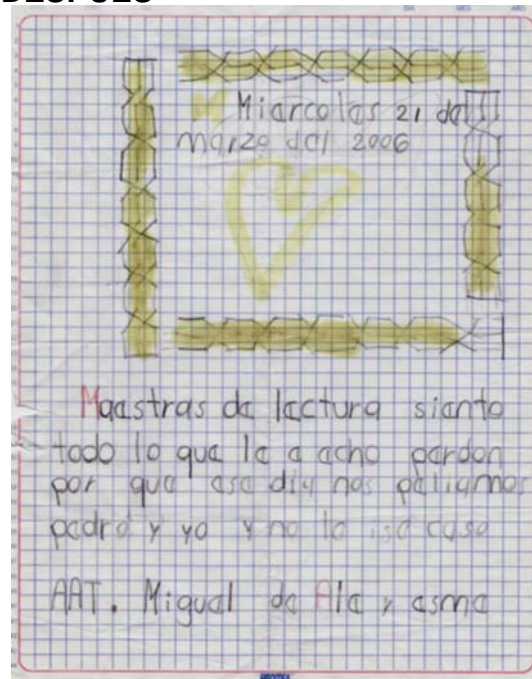 DESPUES
DIA MES AÑO
Miercoles 21 del
marzo del 2006
Maestras de lectura siento
todo lo que le e echo perdon
por que ese dia nos peliamos
pedro y yo y no le ise caso
AAT. Miguel de Ale y esme